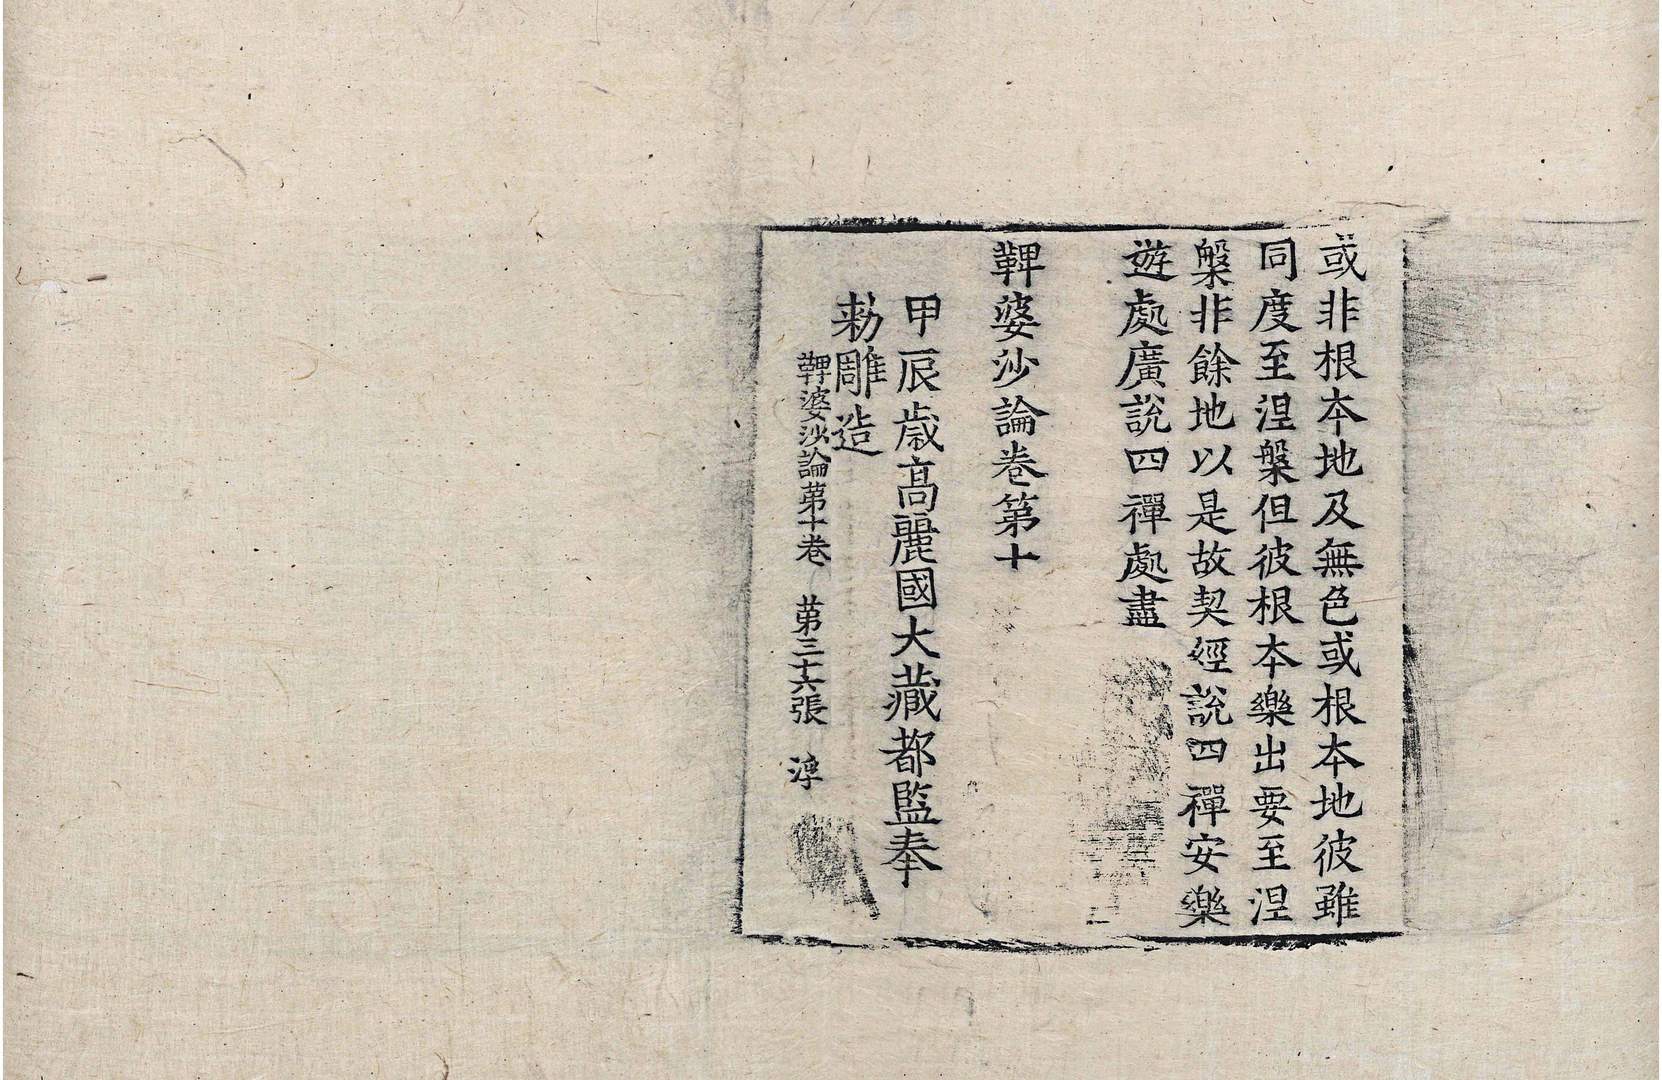 或非根本地及無色或根本地彼雖
同度至涅槃但彼根本樂出要至涅
槃非餘地以是故契經說四禪安樂
遊處廣說四禪處盡
鞞婆沙論卷第十
甲辰歲高麗國大藏都監奉
勅雕造
鞞婆沙論第十卷　第三十六張　淳